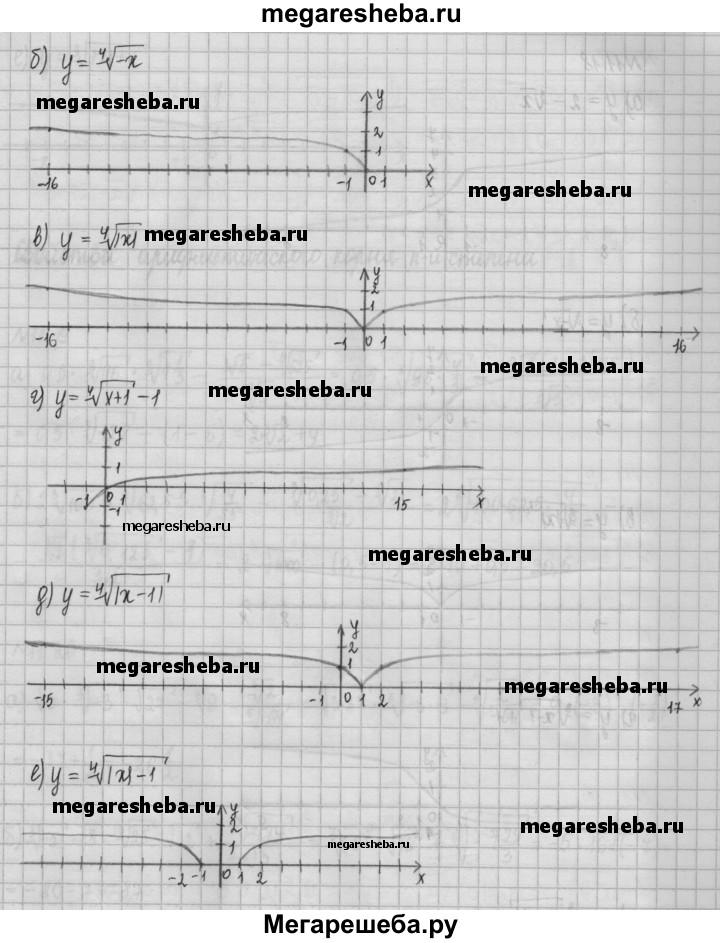 megaresheba.ru
б) y = ∜-x
megaresheba.ru
y
2
1
-16 -1 0 1 x
megaresheba.ru
в) y = ∜|x| megaresheba.ru
y
2
1
-16 -1 0 1 16
megaresheba.ru
г) y = ∜x+1 - 1 megaresheba.ru
y
1
-1 0 1 15 x
-1
megaresheba.ru
megaresheba.ru
д) y = ∜|x-1|
y
2
1
megaresheba.ru
megaresheba.ru
-15 -1 0 1 2 17 x
е) y = ∜|x|-1
megaresheba.ru
y
2
1
megaresheba.ru
megaresheba.ru
-2 -1 0 1 2 x
Мегарешеба.ру